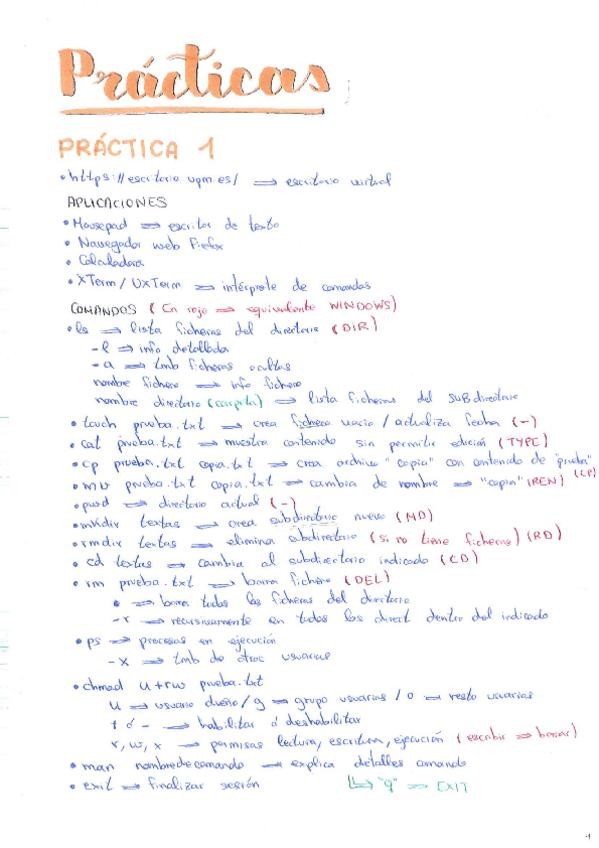 Prácticas
PRÁCTICA 1
• https://escritorio.upm.es/ ⇒ escritorio virtual
APLICACIONES
• Mousepad ⇒ escritor de texto
• Navegador web Firefox
• Calculadora
• XTerm / UXTerm ⇒ intérprete de comandos
COMANDOS (En rojo ⇒ equivalente WINDOWS)
• ls ⇒ lista ficheros del directorio (DIR)
-l ⇒ info detallada
-a ⇒ tmb ficheros ocultos
nombre fichero ⇒ info fichero
nombre directorio (carpeta) ⇒ lista ficheros del subdirectorio
• touch prueba.txt ⇒ crea fichero vacío / actualiza fecha (-)
• cat prueba.txt ⇒ muestra contenido sin permitir edición (TYPE)
• cp prueba.txt copia.txt ⇒ crea archivo "copia" con contenido de "prueba" (CP)
• mv prueba.txt copia.txt ⇒ cambia de nombre ⇒ "copia" (REN)
• pwd ⇒ directorio actual (-)
• mkdir textos ⇒ crea subdirectorio nuevo (MD)
• rmdir textos ⇒ elimina subdirectorio (si no tiene ficheros) (RD)
• cd textos ⇒ cambia al subdirectorio indicado (CD)
• rm prueba.txt ⇒ borra fichero (DEL)
• ⇒ borra todos los ficheros del directorio
-r ⇒ recursivamente en todos los direct dentro del indicado
• ps ⇒ procesos en ejecución
-x ⇒ tmb de otros usuarios
• chmod u+rw prueba.txt
u ⇒ usuario dueño / g ⇒ grupo usuarios / o ⇒ resto usuarios
+ ó - ⇒ habilitar ó deshabilitar
r, w, x ⇒ permisos lectura, escritura, ejecución (escribir ⇒ borrar)
• man nombredecomando ⇒ explica detalles comando
• exit ⇒ finalizar sesión ↳ "q" ⇒ EXIT
1